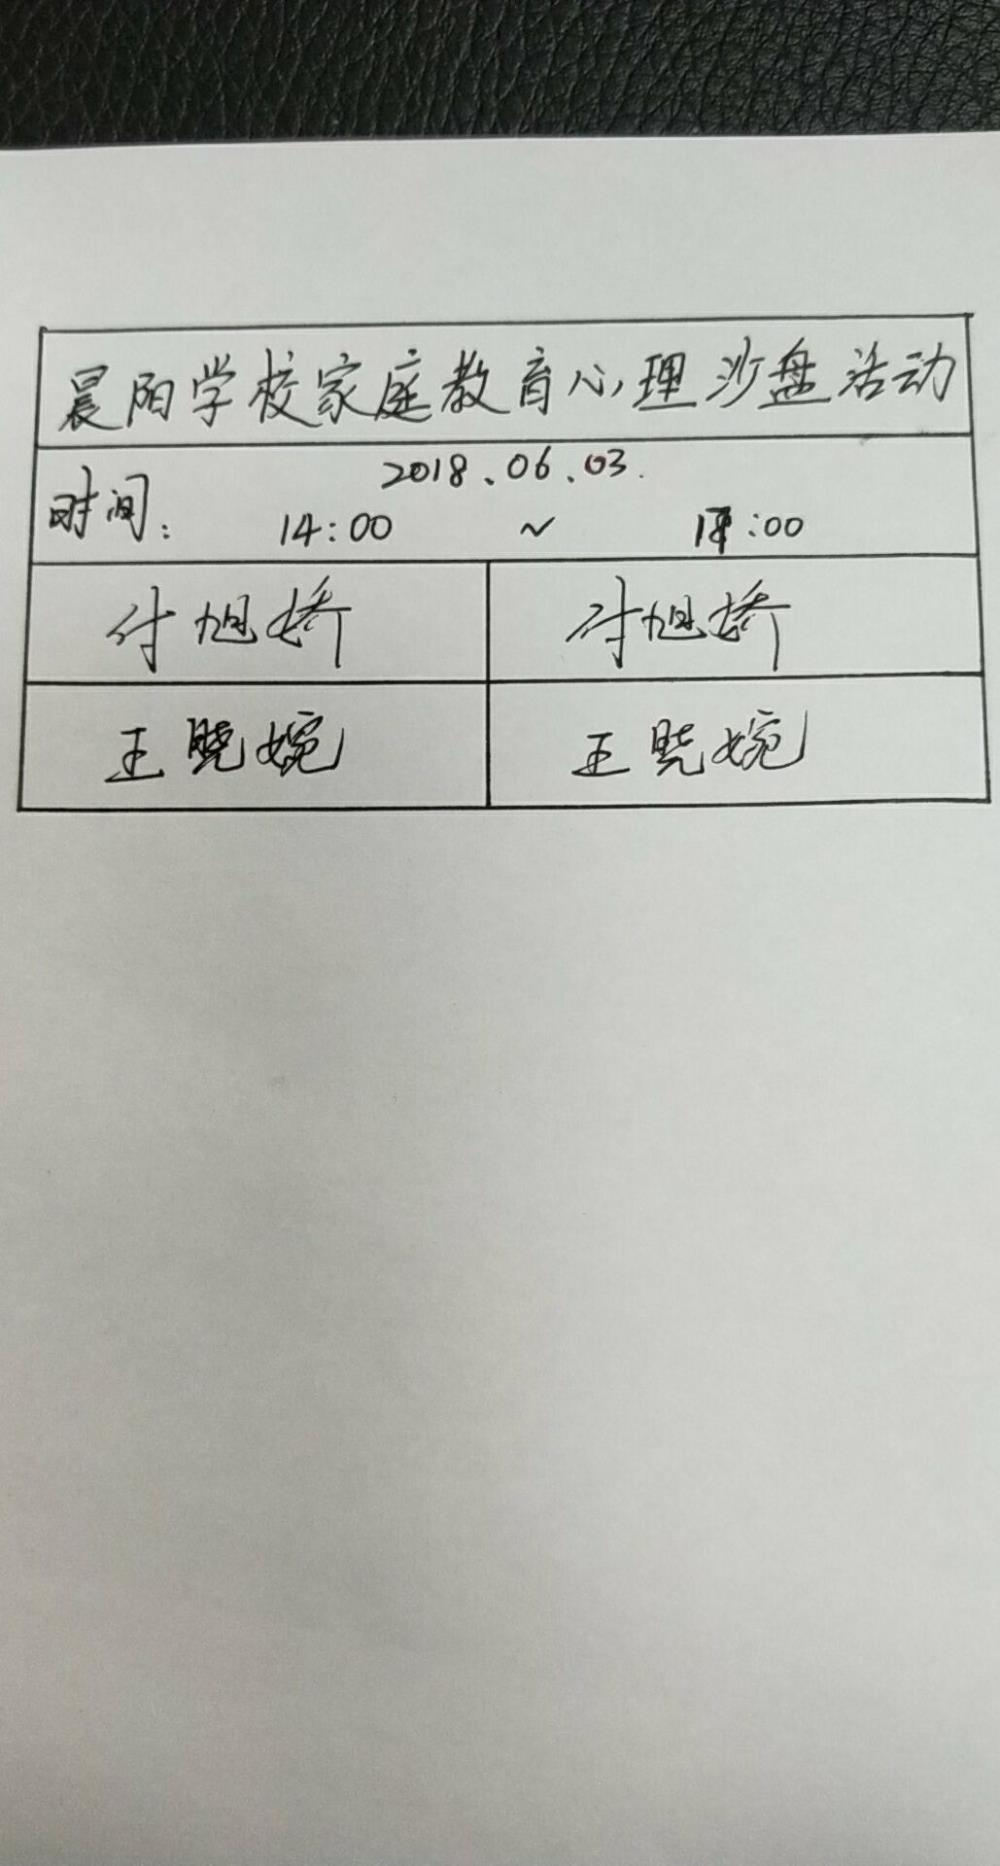 晨阳学校家庭教育心理沙盘活动
2018.06.03.
时间: 14:00 ~ 17:00
付旭娇 付旭娇
王晓婉 王晓婉